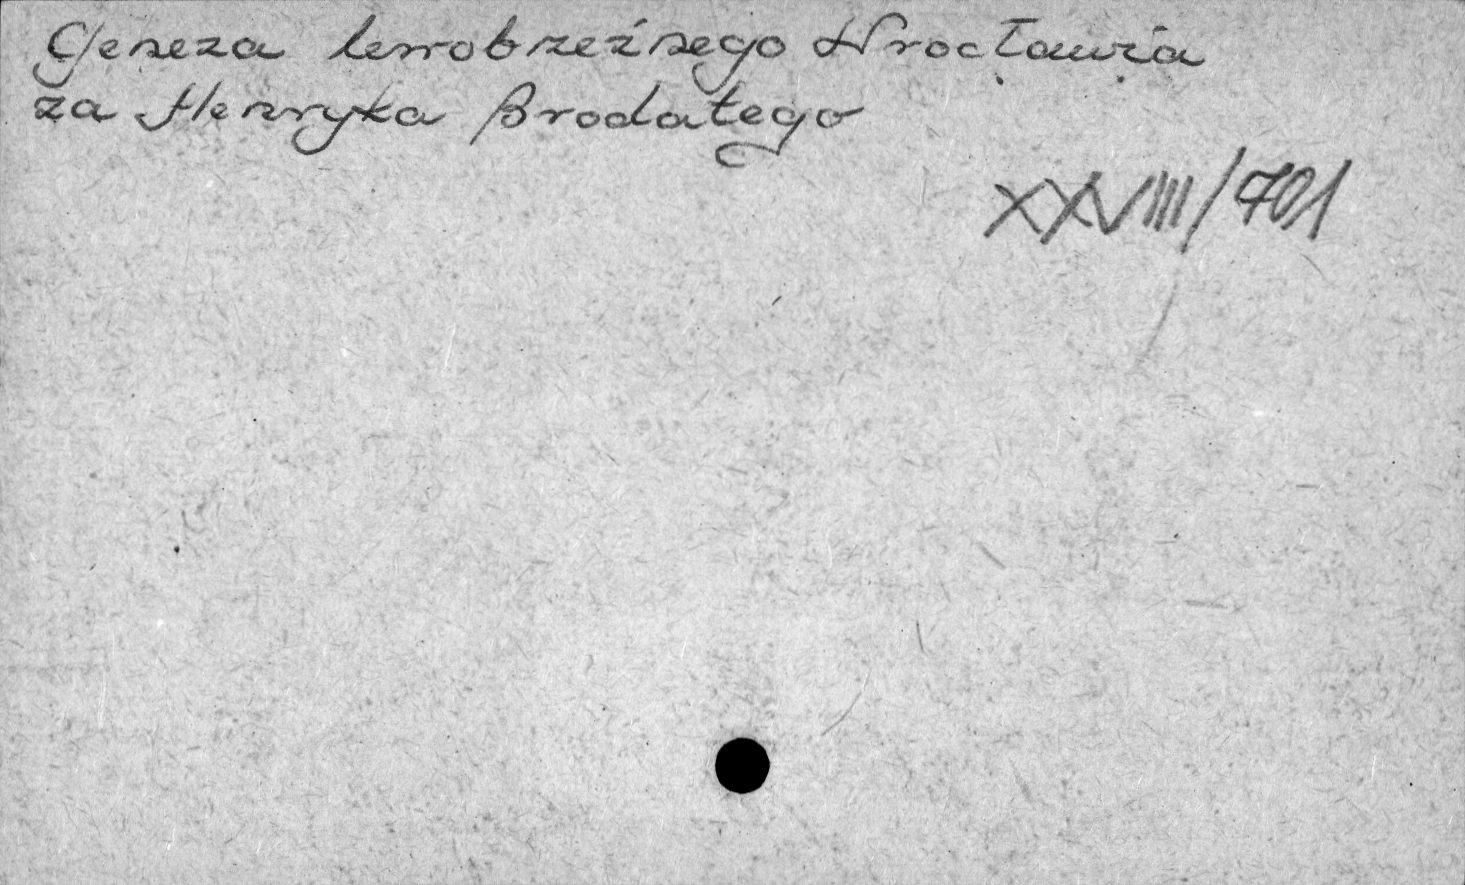 Geneza lewobrzeżnego Wrocławia
za Henryka Brodatego
XXVIIII/701